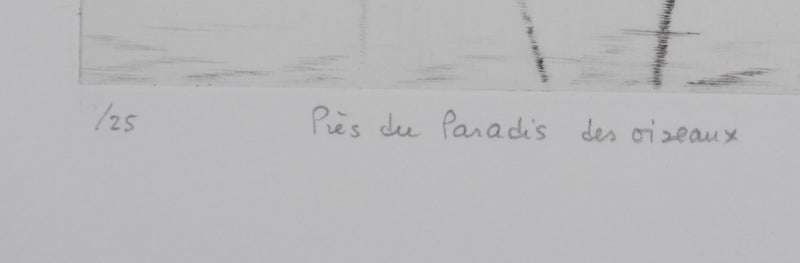 /25 Près du Paradis des oiseaux